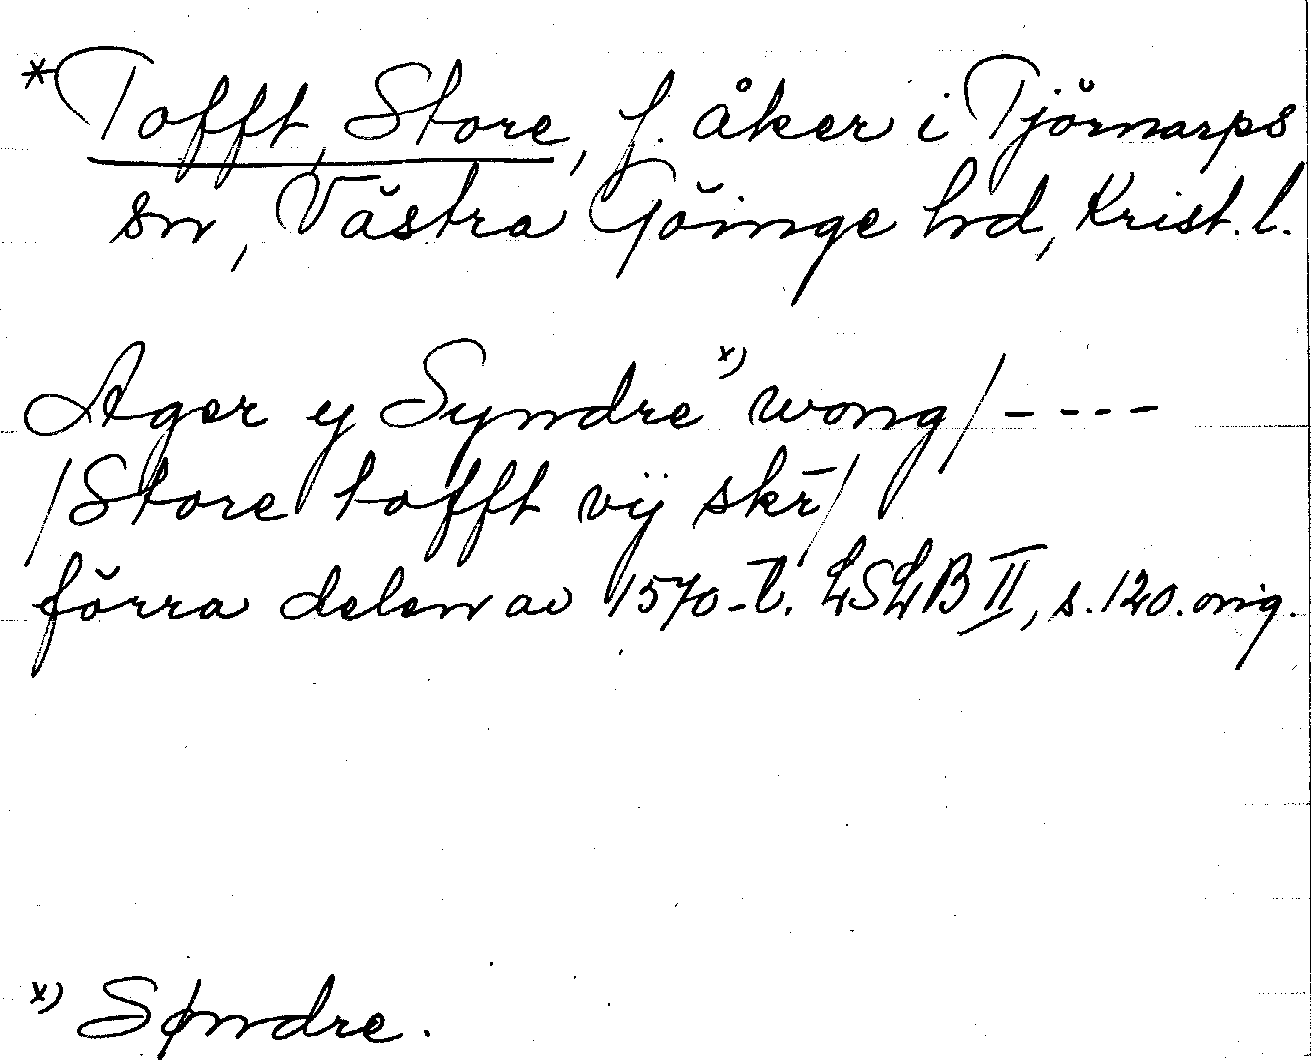 *Tofft, Store, f. åker i Tjörnarps
sn, Västra Göinge hd, Krist. l.
Ager y Syndre x) wong/----
/Store tofft vij skr̄/
förra delen av 1570-t. LSLB II, s. 120. orig.
x) Søndre.